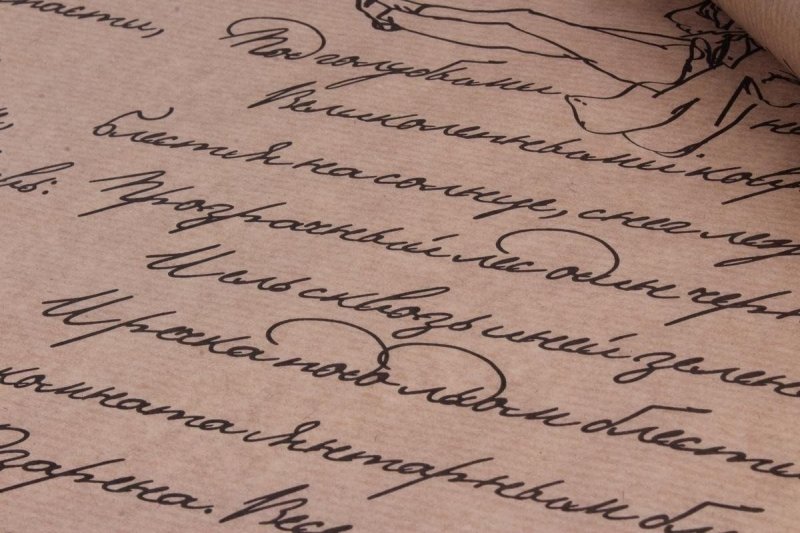 Под голубыми
Великолепными
Блестит на солнце, снег
Прозрачный лес один черн
И ель сквозь иней зелене
И речка подо льдом блести
комната янтарным бл
Озарена. Вес